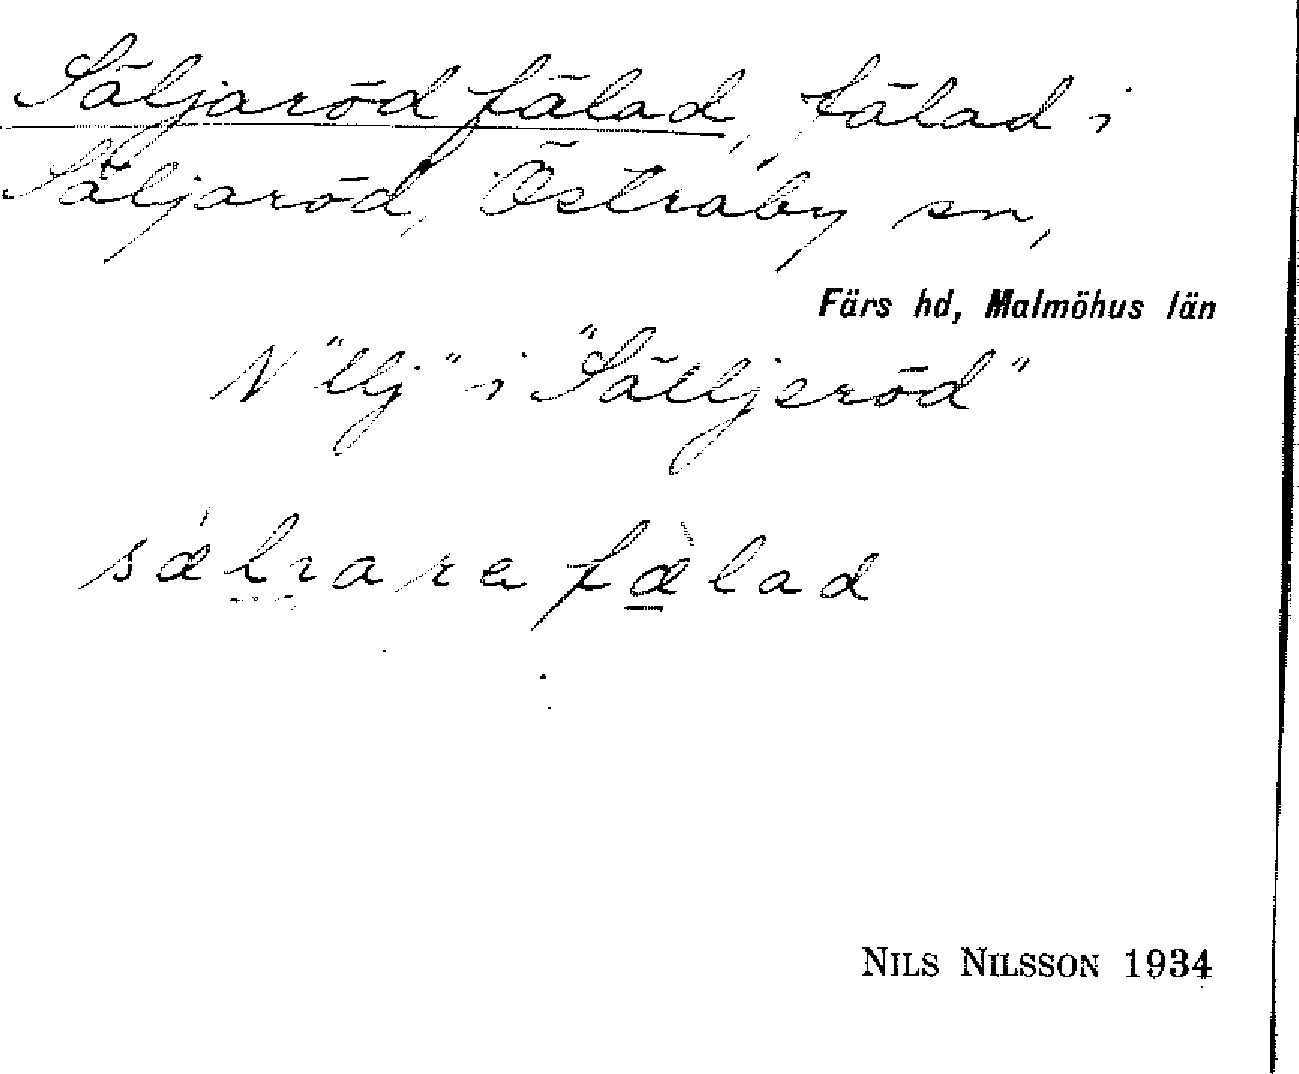 Säljaröd fälad, fälad i
Säljaröd, Östraby sn,
Färs hd, Malmöhus län
N "llj" i "Sälljeröd"
fälad
NILS NILSSON 1934